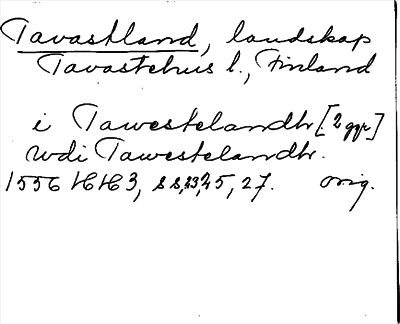 Tavastland, landskap
Tavastehus l., Finland
i Tawestelandh [2 ggr]
wdi Tawestelandh.
1556 HH 3, 25, 27. orig.